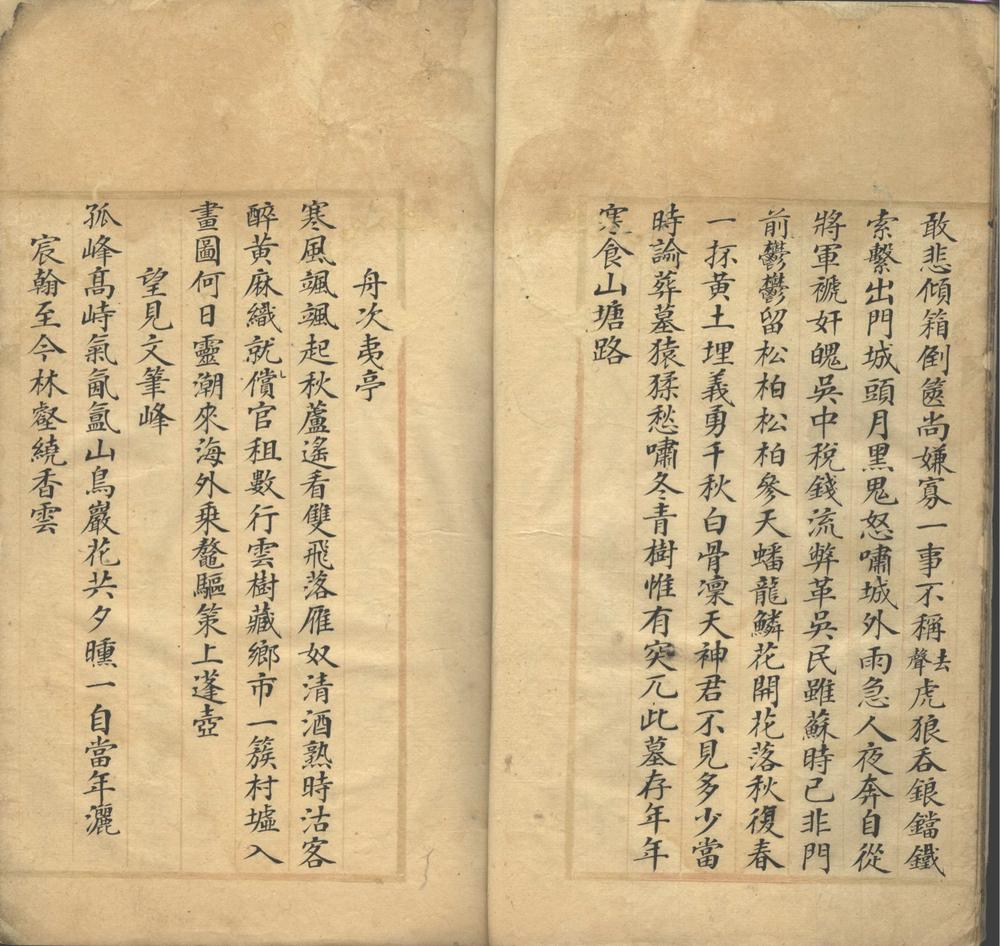 敢悲傾箱倒篋尚嫌寡一事不稱去聲虎狼吞鋃鐺鐵
索繫出門城頭月黑鬼怒嘯城外雨急人夜奔自從
將軍褫奸魄吳中稅錢流弊革吳民雖蘇時已非門
前鬱鬱留松柏松柏參天蟠龍鱗花開花落秋復春
一抔黃土埋義勇千秋白骨凜天神君不見多少當
時諭葬墓猿猱愁嘯冬青樹惟有突兀此墓存年年
寒食山塘路
舟次夷亭
寒風颯颯起秋蘆遙看雙飛落雁奴清酒熟時沽客
醉黃麻織就償官租數行雲樹藏鄉市一簇村墟入
畫圖何日靈潮來海外乘鼇驅策上蓬壺
望見文筆峰
孤峰高峙氣氤氳山鳥巖花共夕曛一自當年灑
宸翰至今林壑繞香雲